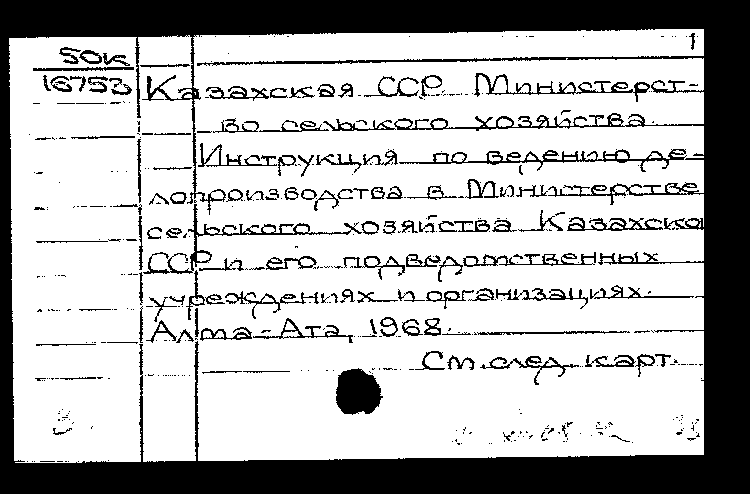 1
50к
16753
Казахская ССР. Министерст-
во сельского хозяйства.
Инструкция по ведению де-
лопроизводства в Министерстве
сельского хозяйства Казахско
ССР и его подведомственных
учреждениях и организациях.
Алма-Ата, 1968.
См. след. карт.